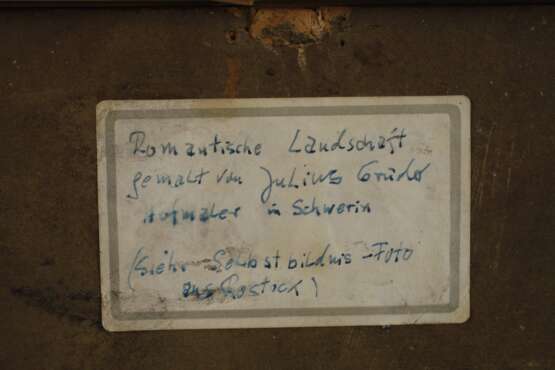 Romantische Landschaft
gemalt von Julius Grüder
Hofmaler in Schwerin
(siehe Selbstbildnis-Foto
aus Rostock)